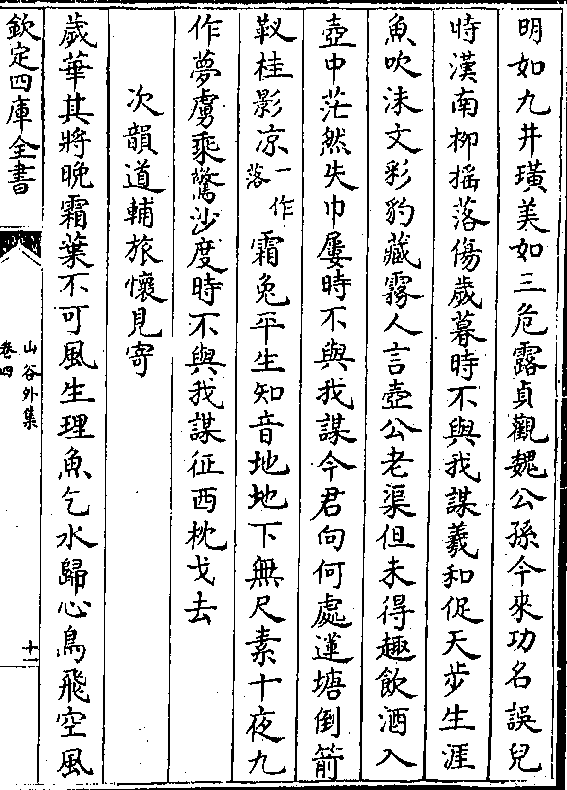 明如九井璜美如三危露貞觀魏公孫今來功名誤兒
時漢南柳摇落傷歲暮時不與我謀羲和促天步生涯
魚吹沫文彩豹藏霧人言壺公老渠但未得趣飲酒入
壺中茫然失巾屨時不與我謀今君向何處蓮塘倒箭
靫桂影凉一作落霜兔平生知音地地下無尺素十夜九
作夢虜乘驚沙度時不與我謀征西枕戈去
次韻道輔旅懷見寄
歲華其將晚霜葉不可風生理魚乞水歸心鳥飛空風
欽定四庫全書
山谷外集
卷四
十一